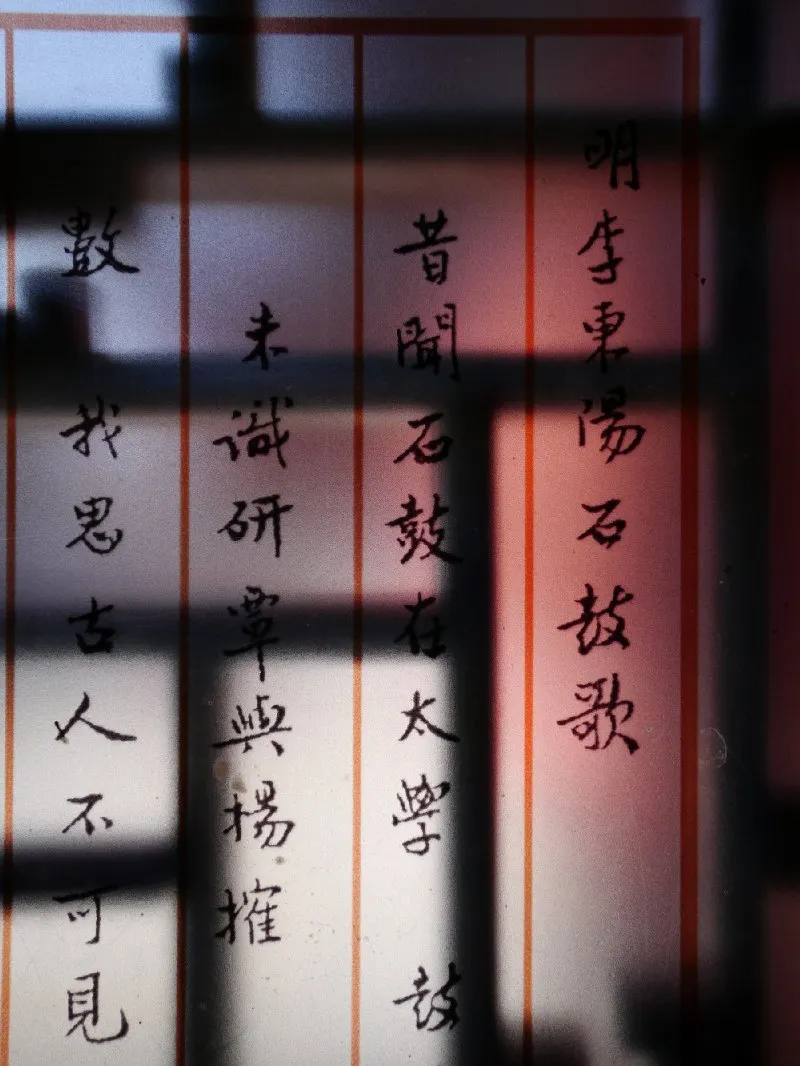 明李東陽石鼓歌
昔聞石鼓在太學 鼓
未識研覃與揚搉
數 我思古人不可見